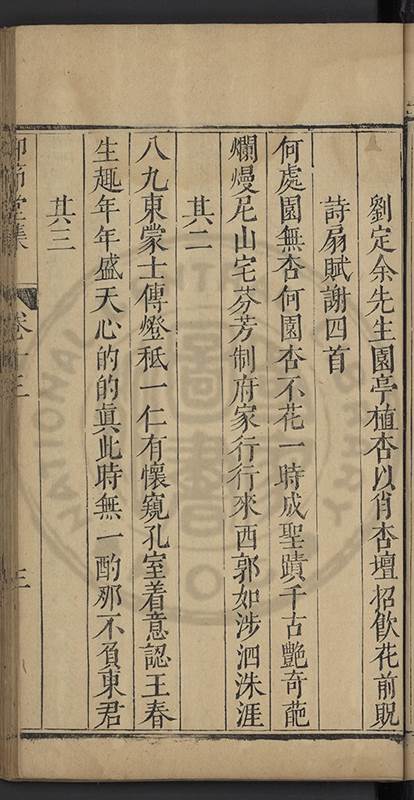 劉定余先生園亭植杏以肖杏壇招飲花前貺
詩扇賦謝四首
何處園無杏何園杏不花一時成聖蹟千古艷奇葩
爛熳尼山宅芬芳制府家行行來西郭如涉泗洙涯
其二
八九東蒙士傳燈秪一仁有懷窺孔室着意認王春
生趣年年盛天心的的眞此時無一酌那不負東君
其三
卷十三
三